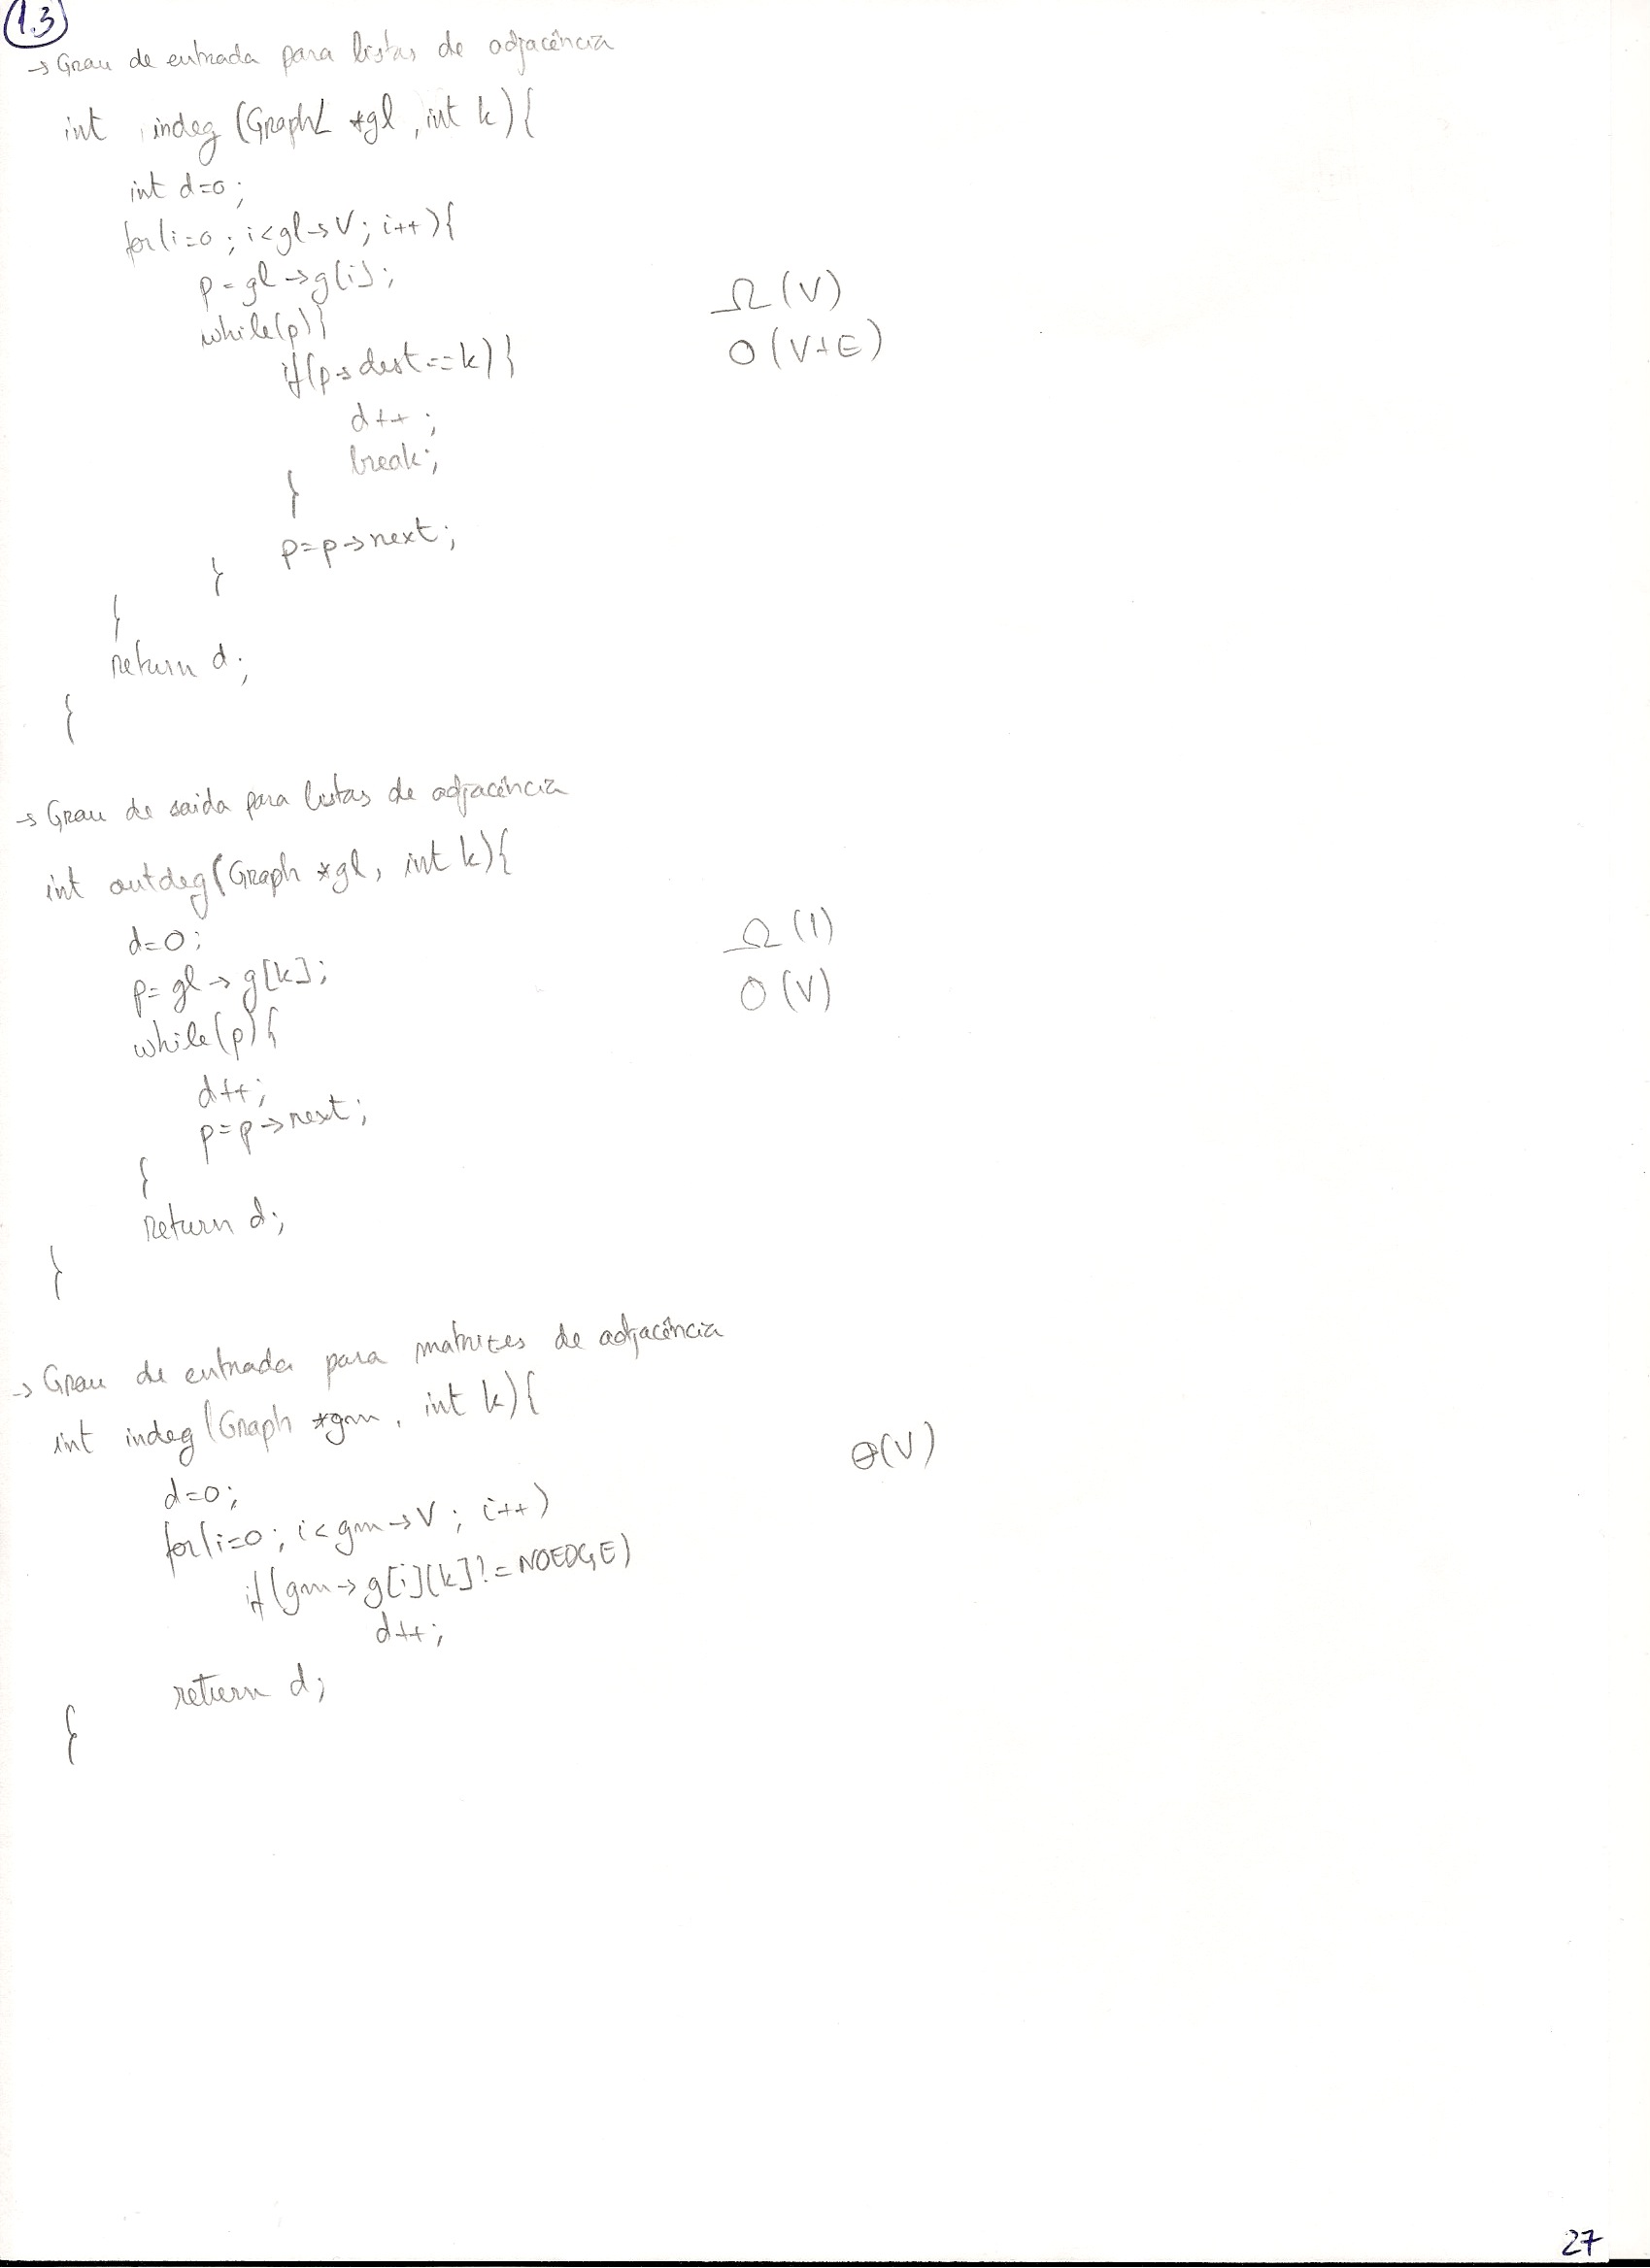 1.3
→ Grau de entrada para listas de adjacência
int indeg (GraphL *gl, int k){
int d=0;
for(i=0; i<gl→V; i++){
p=gl→g[i];
while(p){
Ω(V)
if(p→dest==k)}
O(V+E)
d++;
break;
}
p=p→next;
}
}
return d;
{
→ Grau de saida para listas de adjacência
int outdeg(Graph *gl, int k){
d=0;
Ω(1)
p=gl→g[k];
O(V)
while(p){
d++;
p=p→next;
{
return d;
}
→ Grau de entrada para matrizes de adjacência
int indeg(Graph *gm, int k){
θ(V)
d=0;
for(i=0; i<gm→V; i++)
if(gm→g[i][k]!=NOEDGE)
d++;
return d;
{
27